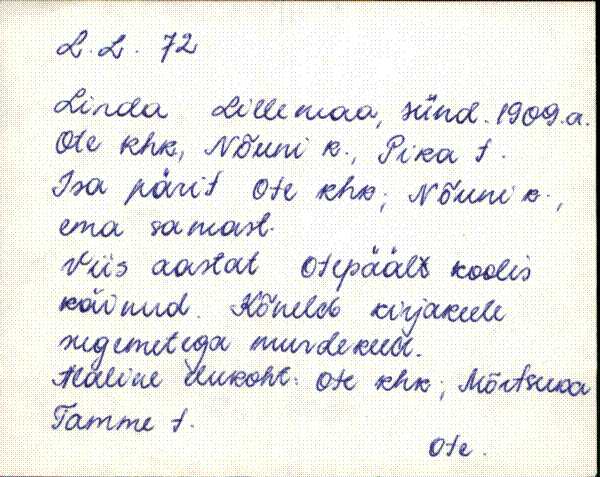 L. L. 72
Linda Lillemaa, sünd. 1909. a.
Ote khk., Nõuni k., Pika t.
Isa pärit Ote khk; Nõuni k.,
ema samast.
Viis aastat Otepääl koolis
käinud. Kõneleb kirjakeele
segemetega murdekeelt.
Praegune elukoht: Ote khk; Mõrtsuka
Tamme t.
Ote.